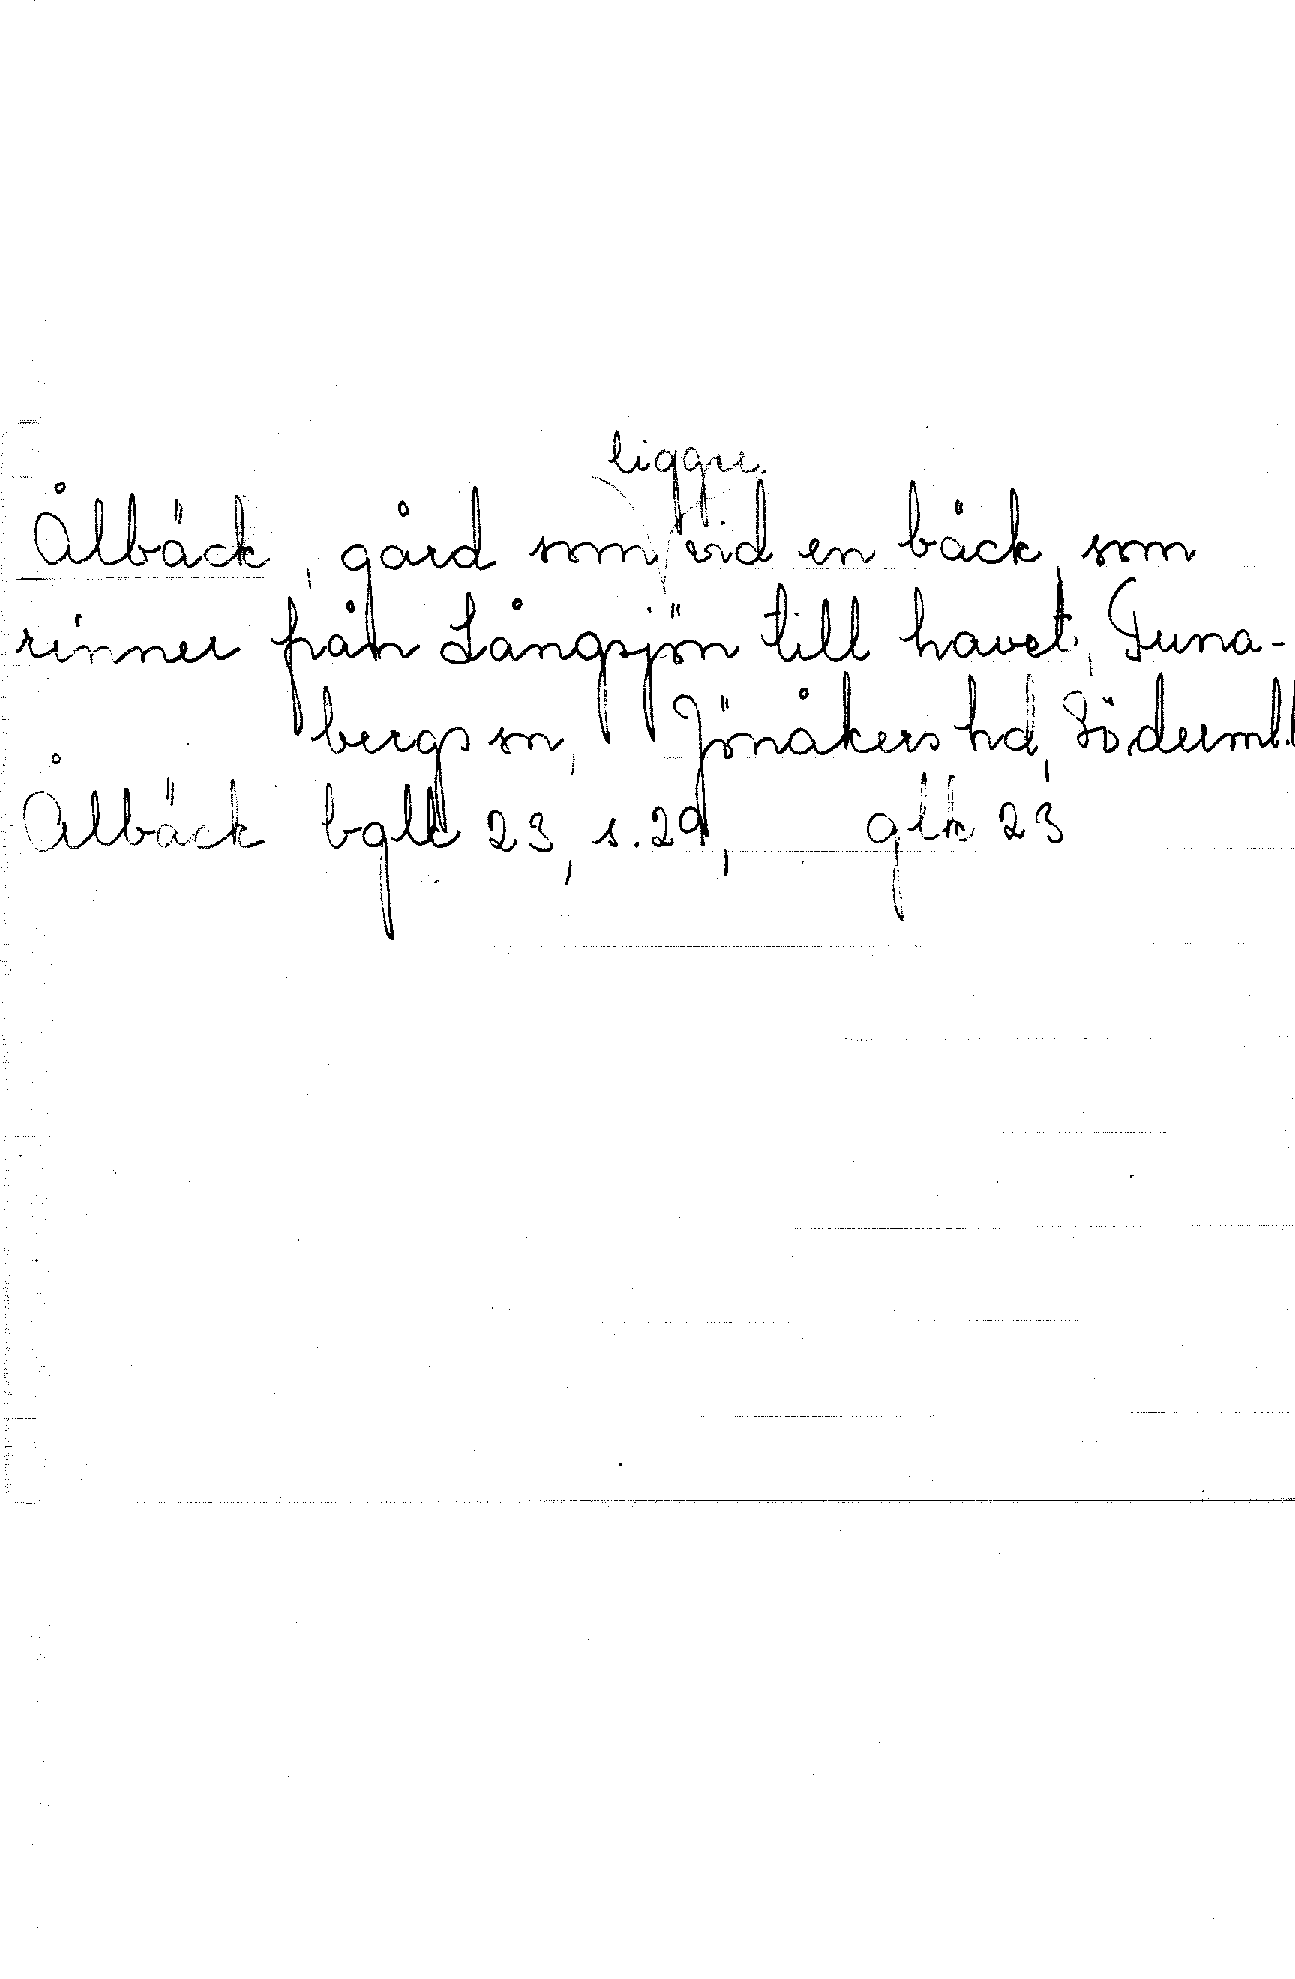 ligger
Ålbäck, gård som vid en bäck, som
rinner från Långsjön till havet, Tuna-
bergs sn, Jönåkers hd, Söderml.
Ålbäck bglk 23, s. 29, glk 23